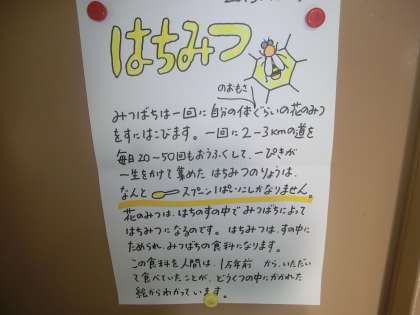 はちみつ
のおもさ
みつばちは一回に自分の体ぐらいの花のみつ
をすにはこびます。一回に2-3kmの道を
毎日20-50回もおうふくして、一ぴきが
一生をかけて集めた はちみつのりょうは、
なんと スプーン1ぱいにしかなりません。
花のみつは、はちのすの中で みつばちによって
はちみつになるのです。はちみつは、すの中に
ためられ、みつばちの食料になります。
この食料を人間は、1万年前 から、いただい
て食べていたことが、どうくつの中にかかれた
絵からわかっています。